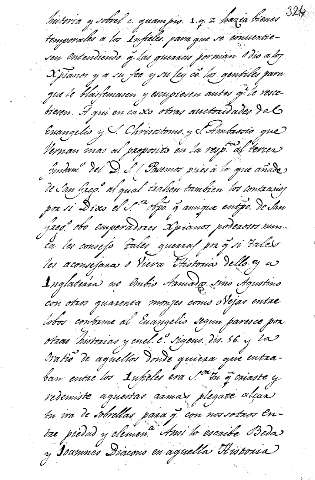 324
historia y sobre el c. quampio 1. q. 2 hazia bienes
temporales a los Infieles, para que se convirtie-
sen entendiendo q. las guerras ponian odio a los
Xpianos y a su fee y su ley en los gentiles para
que le blasfemasen y escupiesen antes q. la reci-
biesen. Aqui encaxo otras auctoridades del
Evangelio y S. Chrisostomo y S. Ambrosio que
vernan mas al proposito en la resp. al tercer
fundam.to del D. S. Pasemos pues a lo que añade
de San Greg.o al qual citaban tambien los contrarios
por si Dixo el S. que aunque en tpo. de San
Greg.o obo emperadores Xpianos poderosos nun-
ca les consejo tales guerras por q. si tal
les aconsejara o viera Historia dello y a
Inglaterra no embio Armada, sino Agustino
con otros quarenta monjes como ovejas entre
lobos conforme al Evangelio segun paresce por
otras historias y en el c. si gens. dis. 56 y la
Oratio de aquellos donde quiera que entra-
ban entre los Infieles era S.or tu q. criaste y
redemiste aquestas armas plegate alzar
tu ira de sobrellas para q. con nosotros en-
tre piedad y clemen.a Ansi lo escribe Beda
y Joannes Diacono en aquella Historia